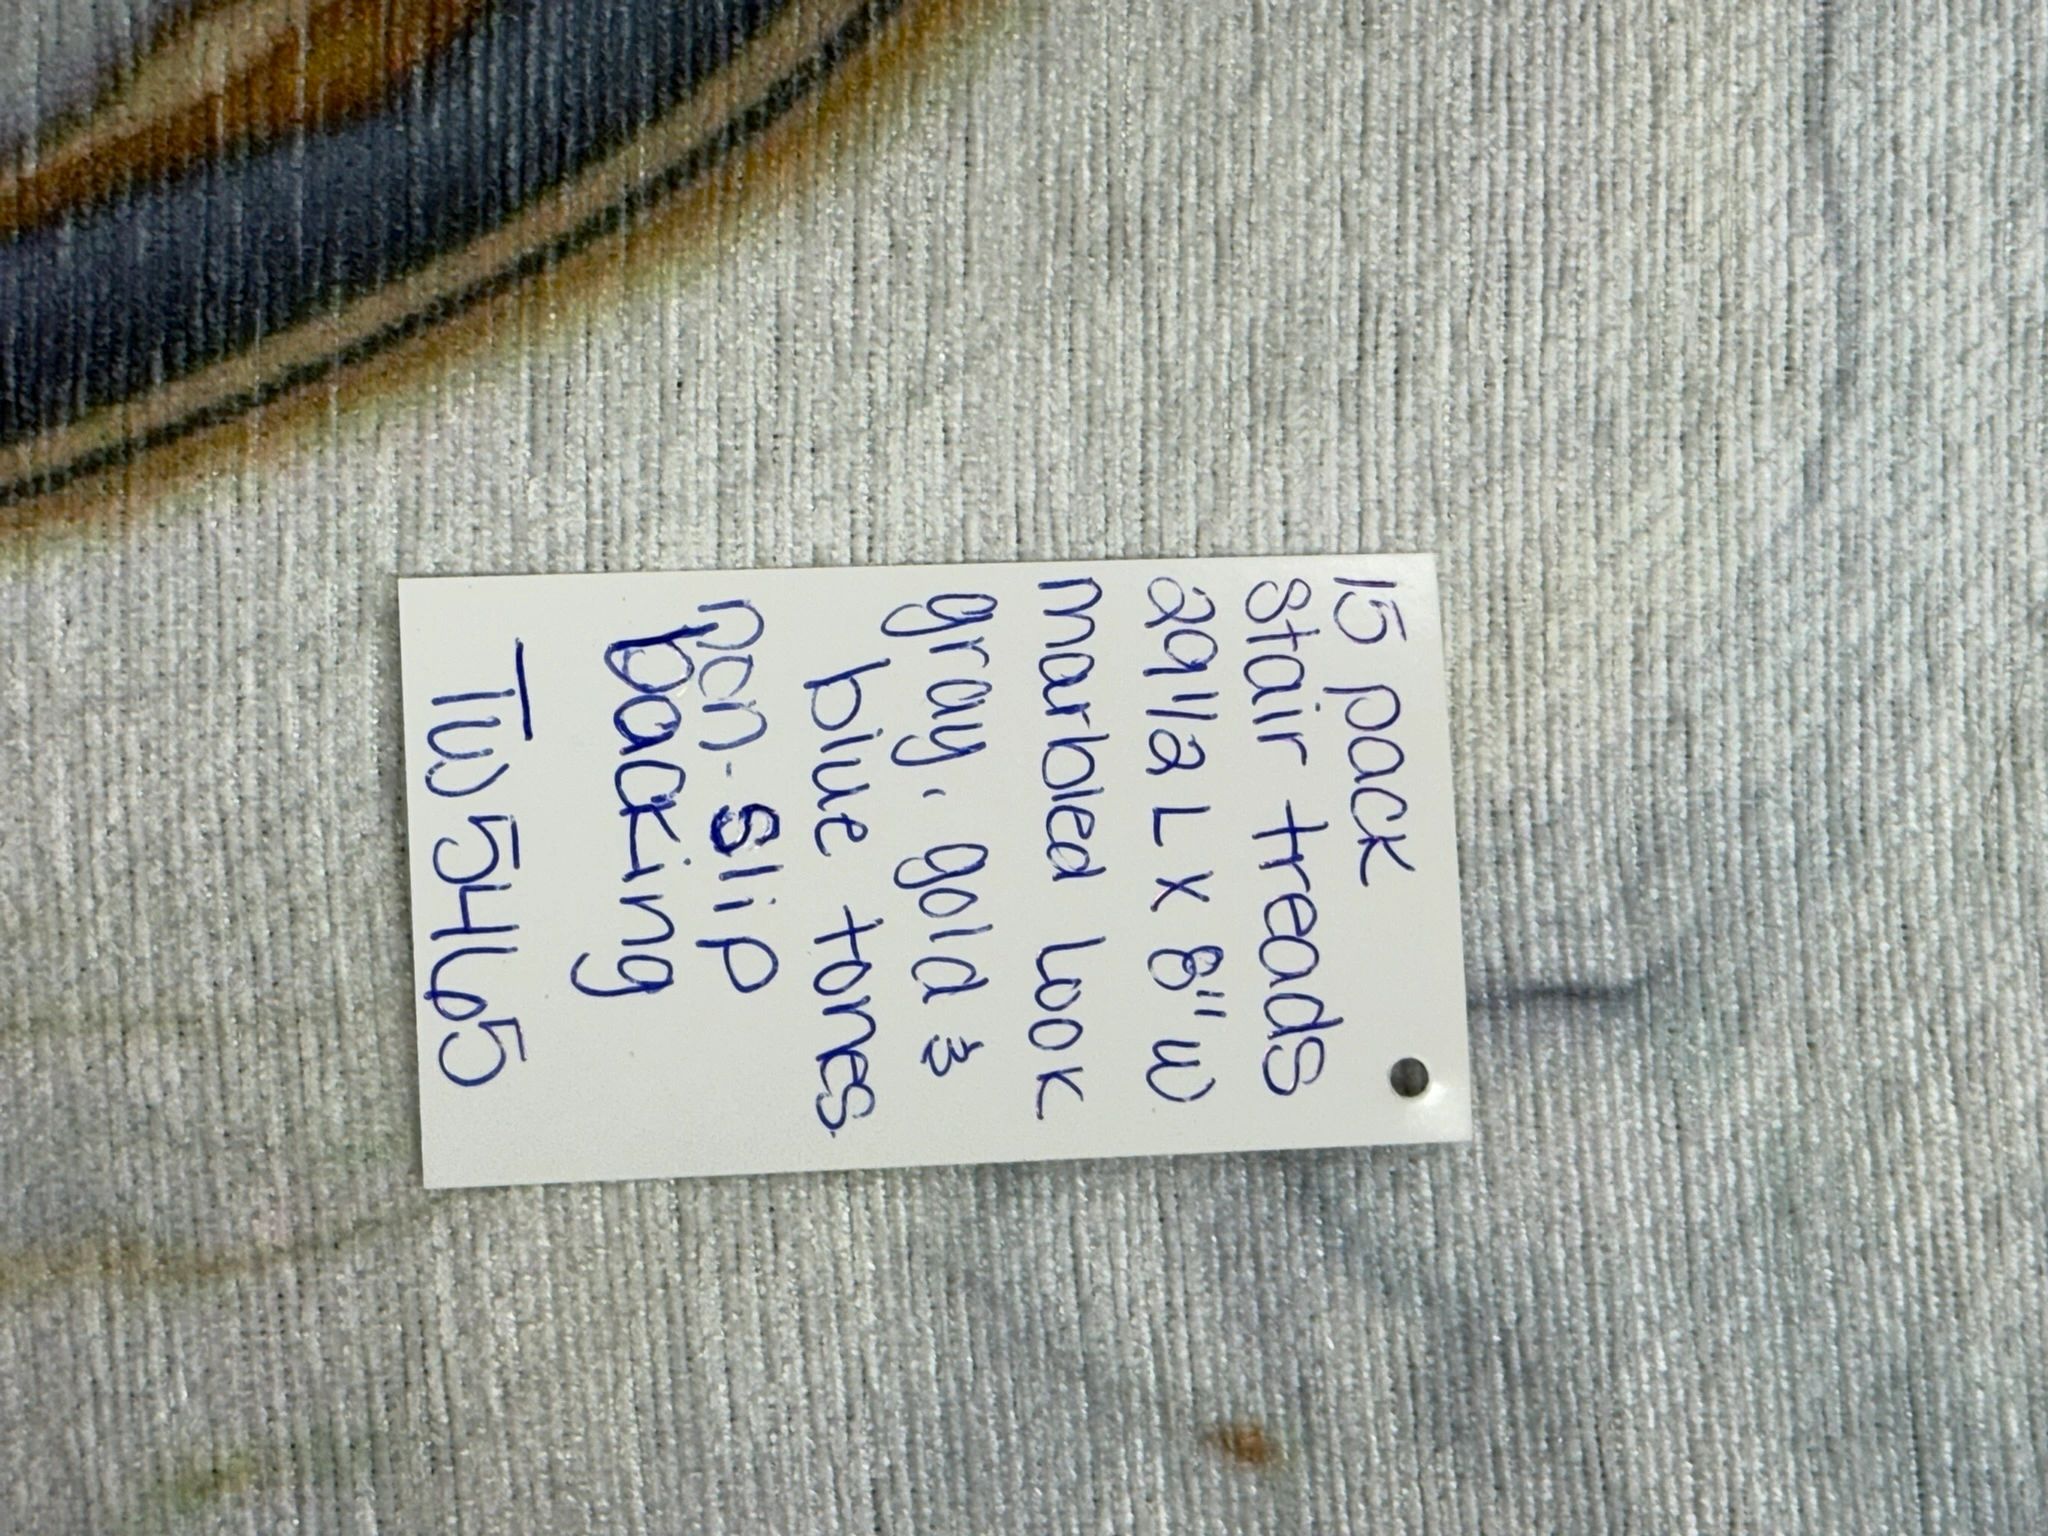 15 pack
stair treads
29 1/2 L x 8" W
marbled look
gray, gold &
blue tones
non-slip
backing
TW 5465